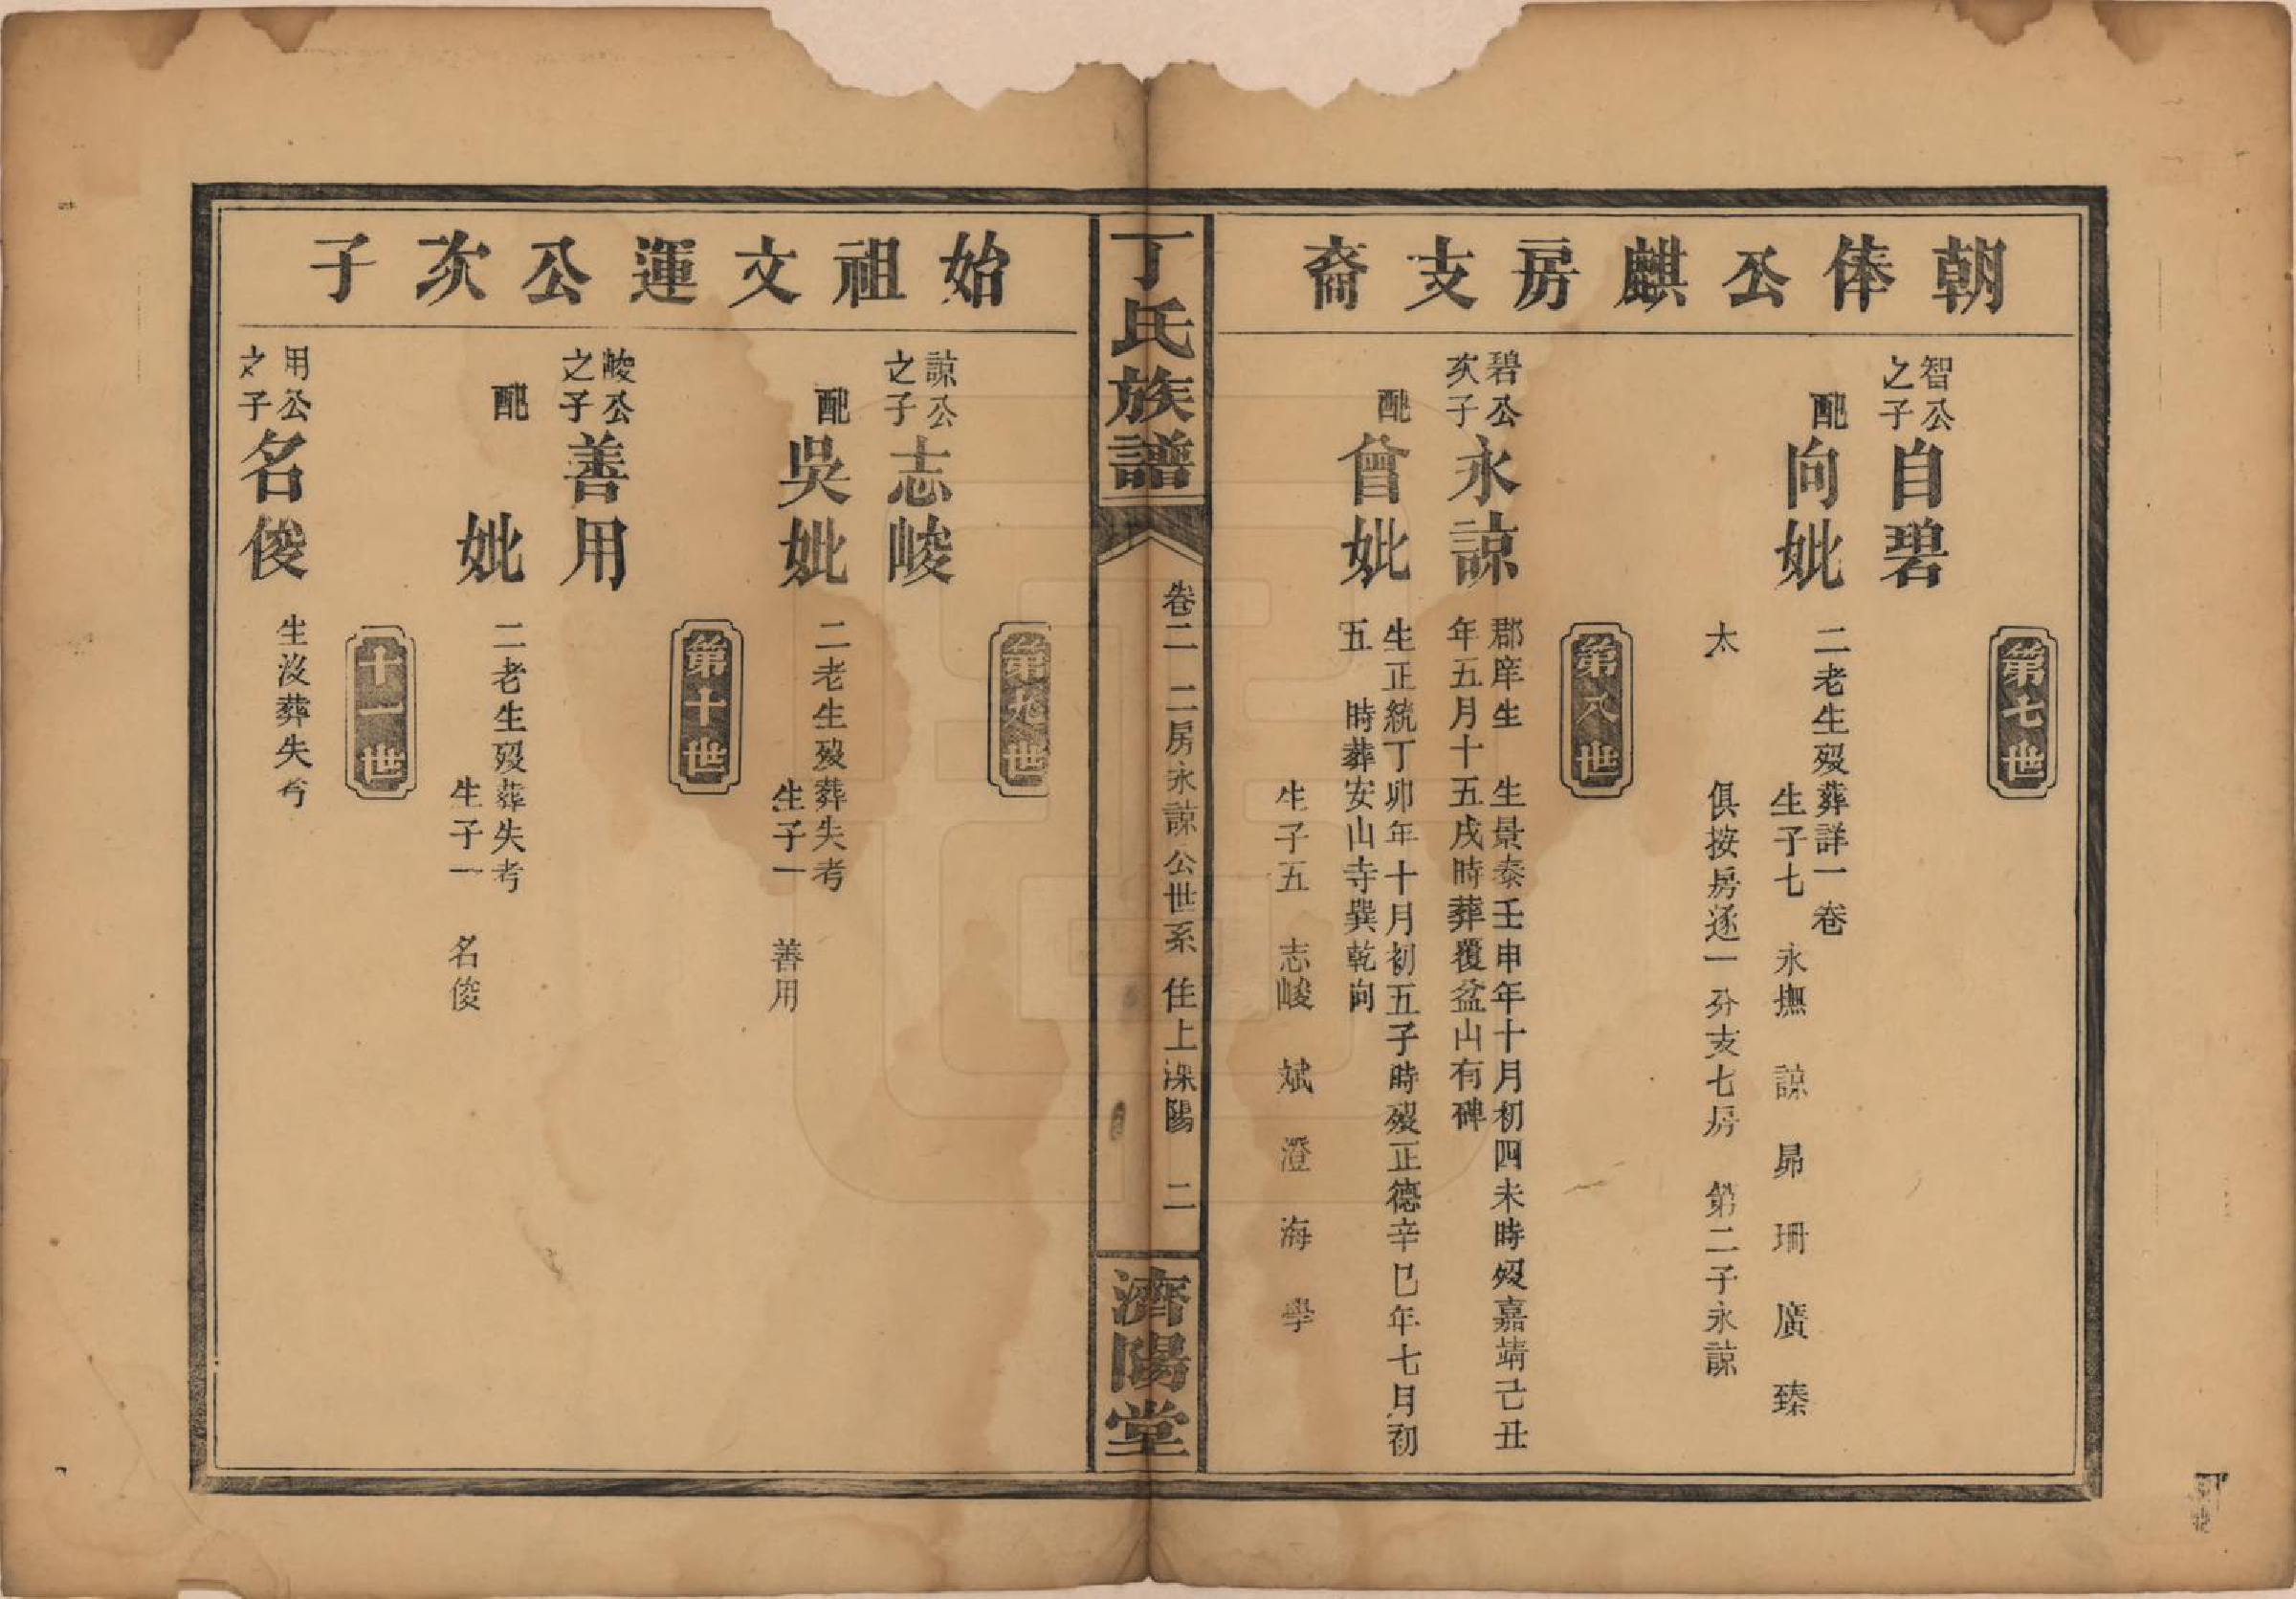 朝俸公麒房支裔
第七世
智公之子
自碧
配
向妣
二老生歿葬詳一卷
生子七 永撫 諒 昴 珊 廣 臻
太 俱按房逐一分支七房 第二子永諒
第八世
碧公次子
永諒
郡庠生 生景泰壬申年十月初四未時歿嘉靖己丑
年五月十五戌時葬覆盆山有碑
配
曾妣
生正統丁卯年十月初五子時歿正德辛巳年七月初
五 時葬安山寺巽乾向
生子五 志峻 斌 澄 海 學
丁氏族譜
卷二 二房永諒公世系 住上溁陽 二
濟陽堂
始祖文運公次子
第九世
諒公之子
志峻
配
吳妣
二老生歿葬失考
生子一 善用
第十世
峻公之子
善用
配
妣
二老生歿葬失考
生子一 名俊
十一世
用公之子
名俊
生沒葬失考